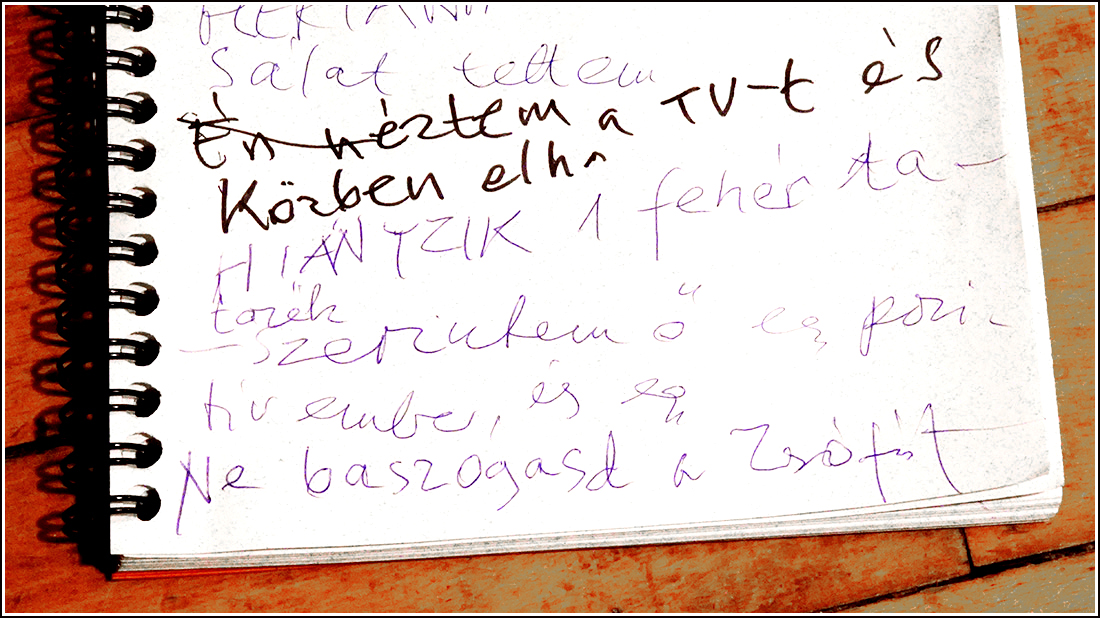 Sálat tettem
Én néztem a TV-t és
Közben elh
HIÁNYZIK 1 fehér ta-
törék
- szerintem ő egy pozi-
tív ember, és egy
Ne baszogasd a Zsófit